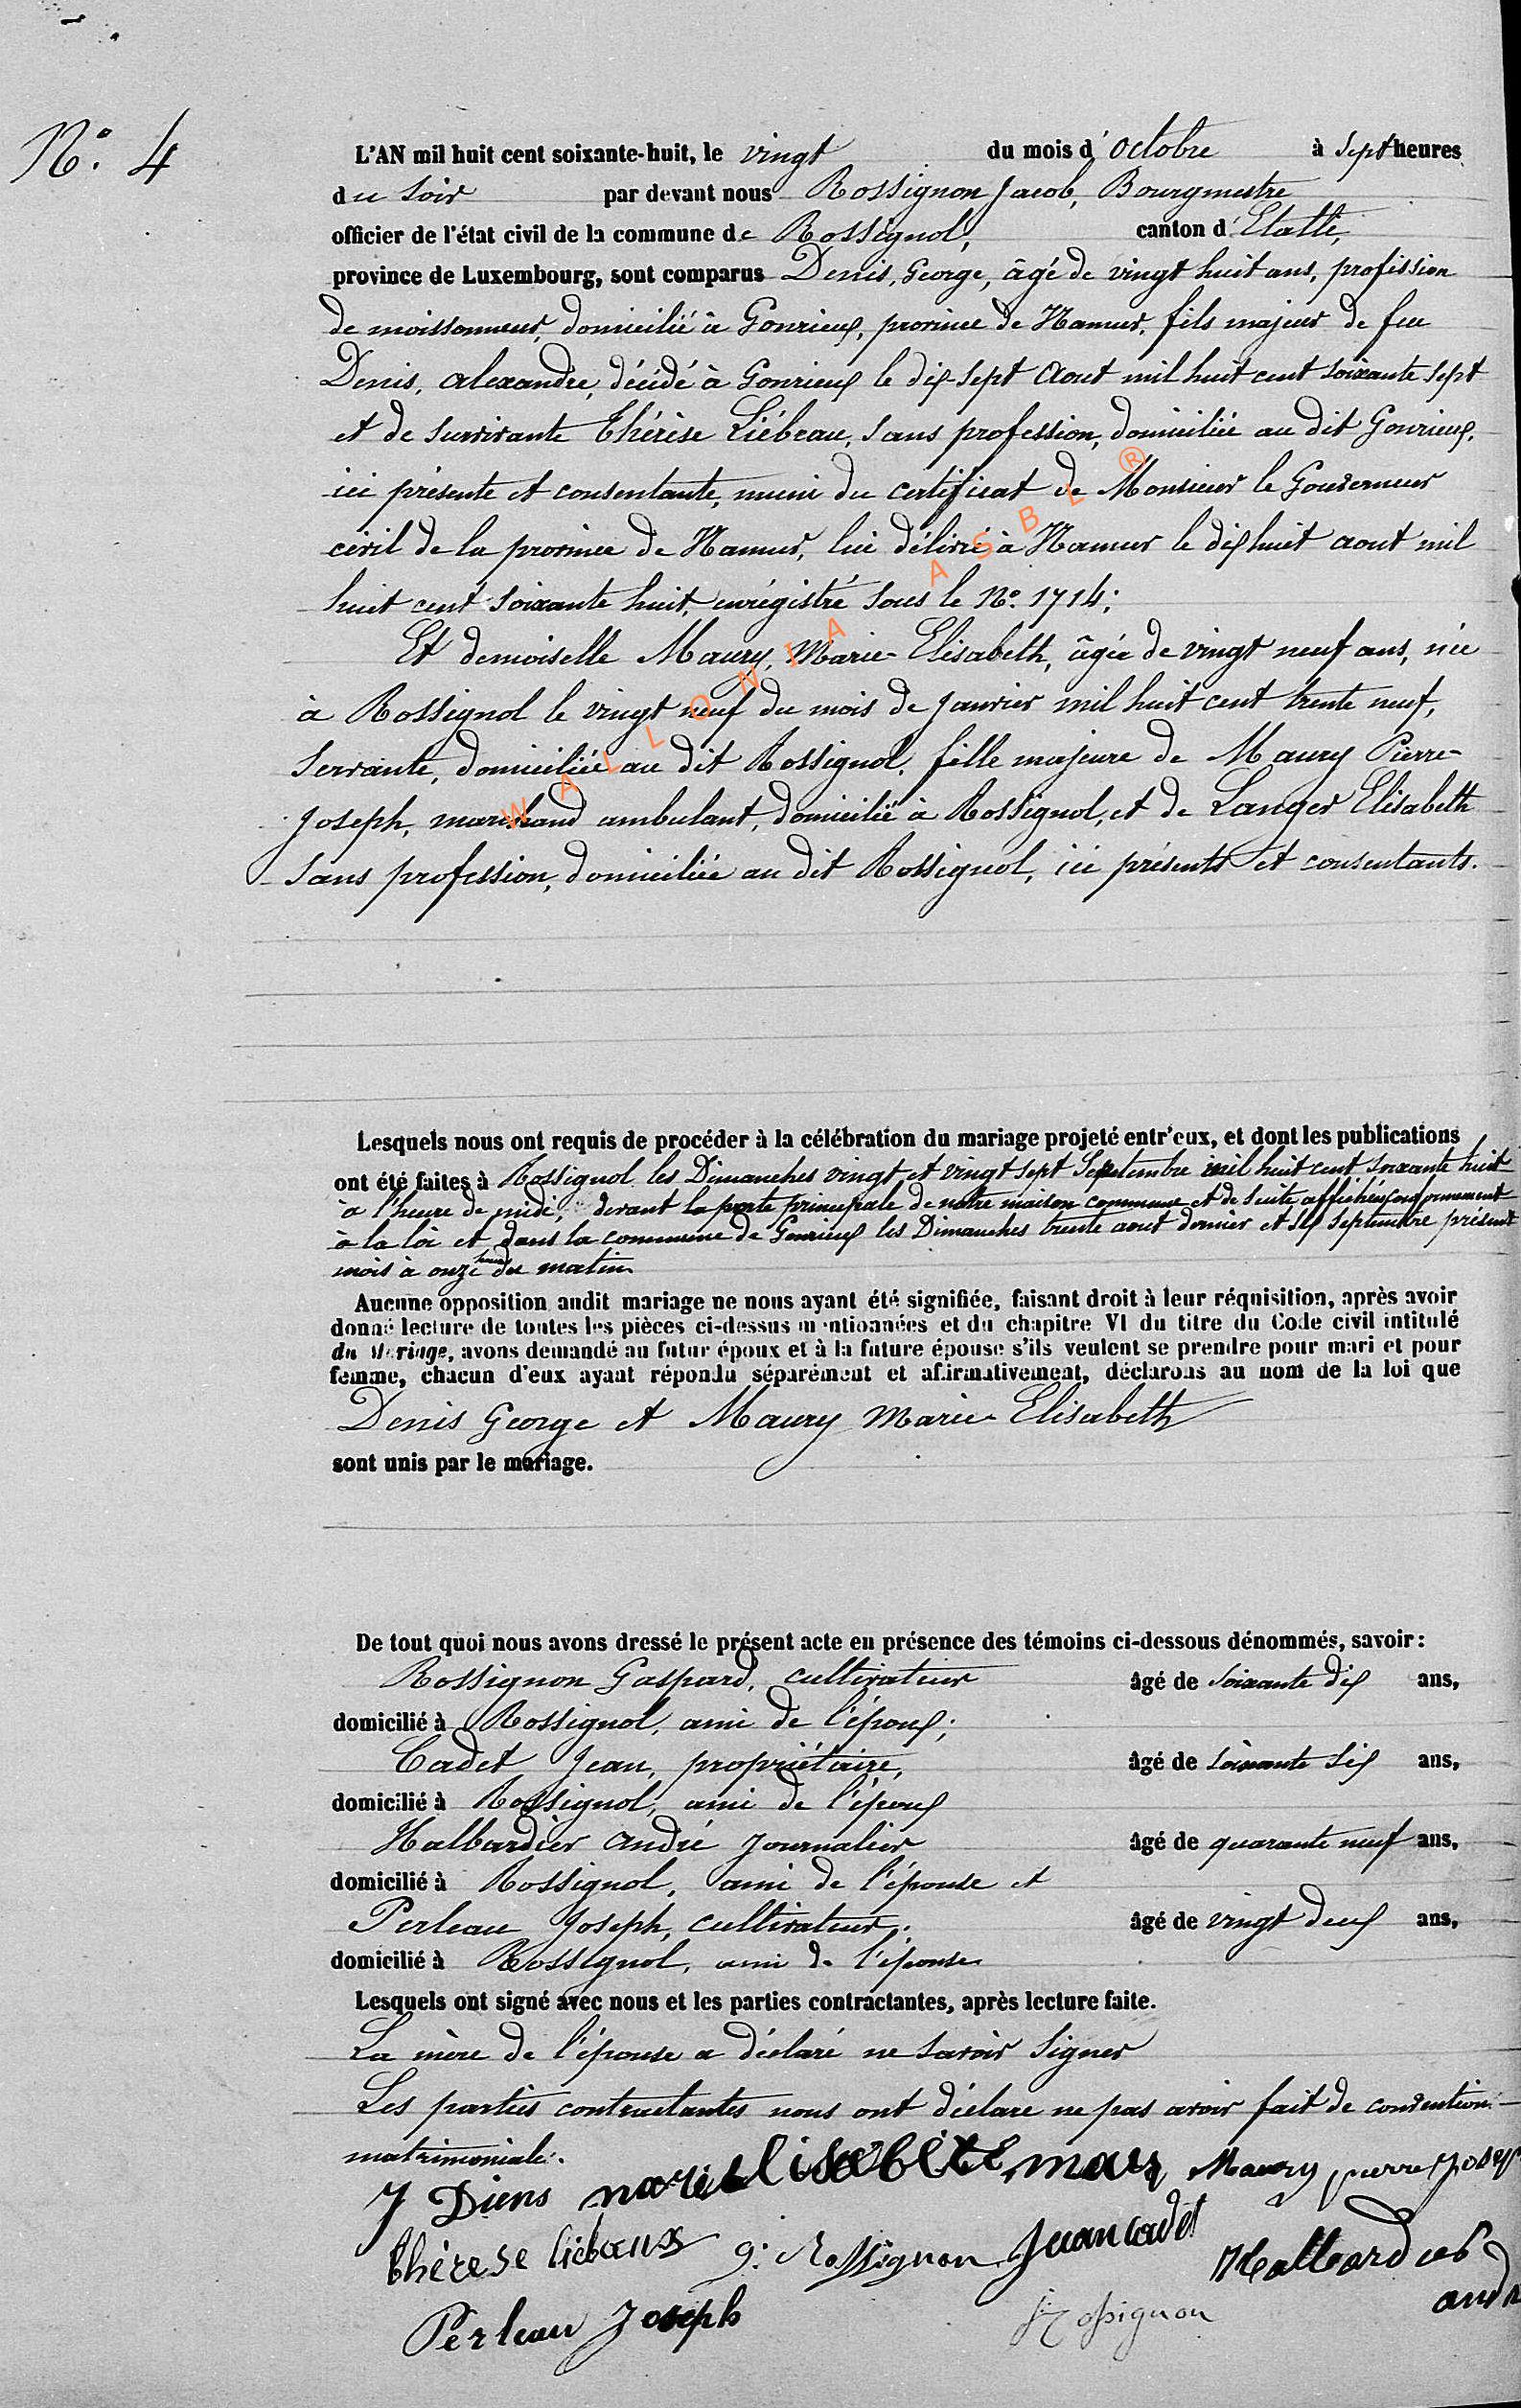 N°. 4
L'AN mil huit cent soixante-huit, le vingt du mois d'octobre à sept heures
du soir par devant nous Rossignon Jacob, Bourgmestre
officier de l'état civil de la commune de Rossignol, canton d'Etalle,
province de Luxembourg, sont comparus Denis, George, âgé de vingt huit ans, profession
de moissonneur, domicilié à Gonrieux, province de Namur, fils majeur de feu
Denis, alexandre, décédé à Gonrieux le dix-sept Aout mil huit cent soixante sept
et de survivante Thérèse Liébeau, sans profession, domiciliée au dit Gonrieux,
ici présente et consentante, muni du certificat de Monsieur le Gouverneur
civil de la province de Namur, lui délivré à Namur le dix huit aout mil
huit cent soixante huit, enrégistré sous le N°. 1714;
Et demoiselle Maury, Marie-Elisabeth, âgée de vingt neuf ans, née
à Rossignol le vingt neuf du mois de Janvier mil huit cent trente neuf,
servante, domiciliée au dit Rossignol, fille majeure de Maury Pierre-
Joseph, marchand ambulant, domicilié à Rossignol, et de Langer Elisabeth
sans profession, domiciliée au dit Rossignol, ici présents et consentants.
WALLONIA ASBL ®
Lesquels nous ont requis de procéder à la célébration du mariage projeté entr'eux, et dont les publications
ont été faites à Rossignol les Dimanches vingt et vingt sept Septembre mil huit cent soixante huit
à l'heure de midi, devant la porte principale de notre maison commune et de suite affichées conformément
à la loi et dans la commune de Gonrieux les Dimanches trente aout dernier et six septembre présent
mois à onze heures du matin
Aucune opposition audit mariage ne nous ayant été signifiée, faisant droit à leur réquisition, après avoir
donné lecture de toutes les pièces ci-dessus mentionnées et du chapitre VI du titre du Code civil intitulé
du Mariage, avons demandé au futur époux et à la future épouse s'ils veulent se prendre pour mari et pour
femme, chacun d'eux ayant répondu séparément et affirmativement, déclarons au nom de la loi que
Denis George et Maury Marie-Elisabeth
sont unis par le mariage.
De tout quoi nous avons dressé le présent acte en présence des témoins ci-dessous dénommés, savoir:
Rossignon Gaspard, cultivateur âgé de soixante dix ans,
domicilié à Rossignol, ami de l'époux;
Cadet Jean, propriétaire, âgé de soixante six ans,
domicilié à Rossignol, ami de l'époux
Halbardier andré Journalier âgé de quarante neuf ans,
domicilié à Rossignol, ami de l'épouse et
Perleau Joseph, cultivateur, âgé de vingt deux ans,
domicilié à Rossignol, ami de l'épouse
Lesquels ont signé avec nous et les parties contractantes, après lecture faite.
La mère de l'épouse a déclaré ne savoir signer
Les parties contractantes nous ont déclaré ne pas avoir fait de convention
matrimoniale.
J Diens marie Elisabete maury Maury pierre Joseph
thérese liébaux g: Rossignon Jean cadet
Perleau Joseph J Rossignon